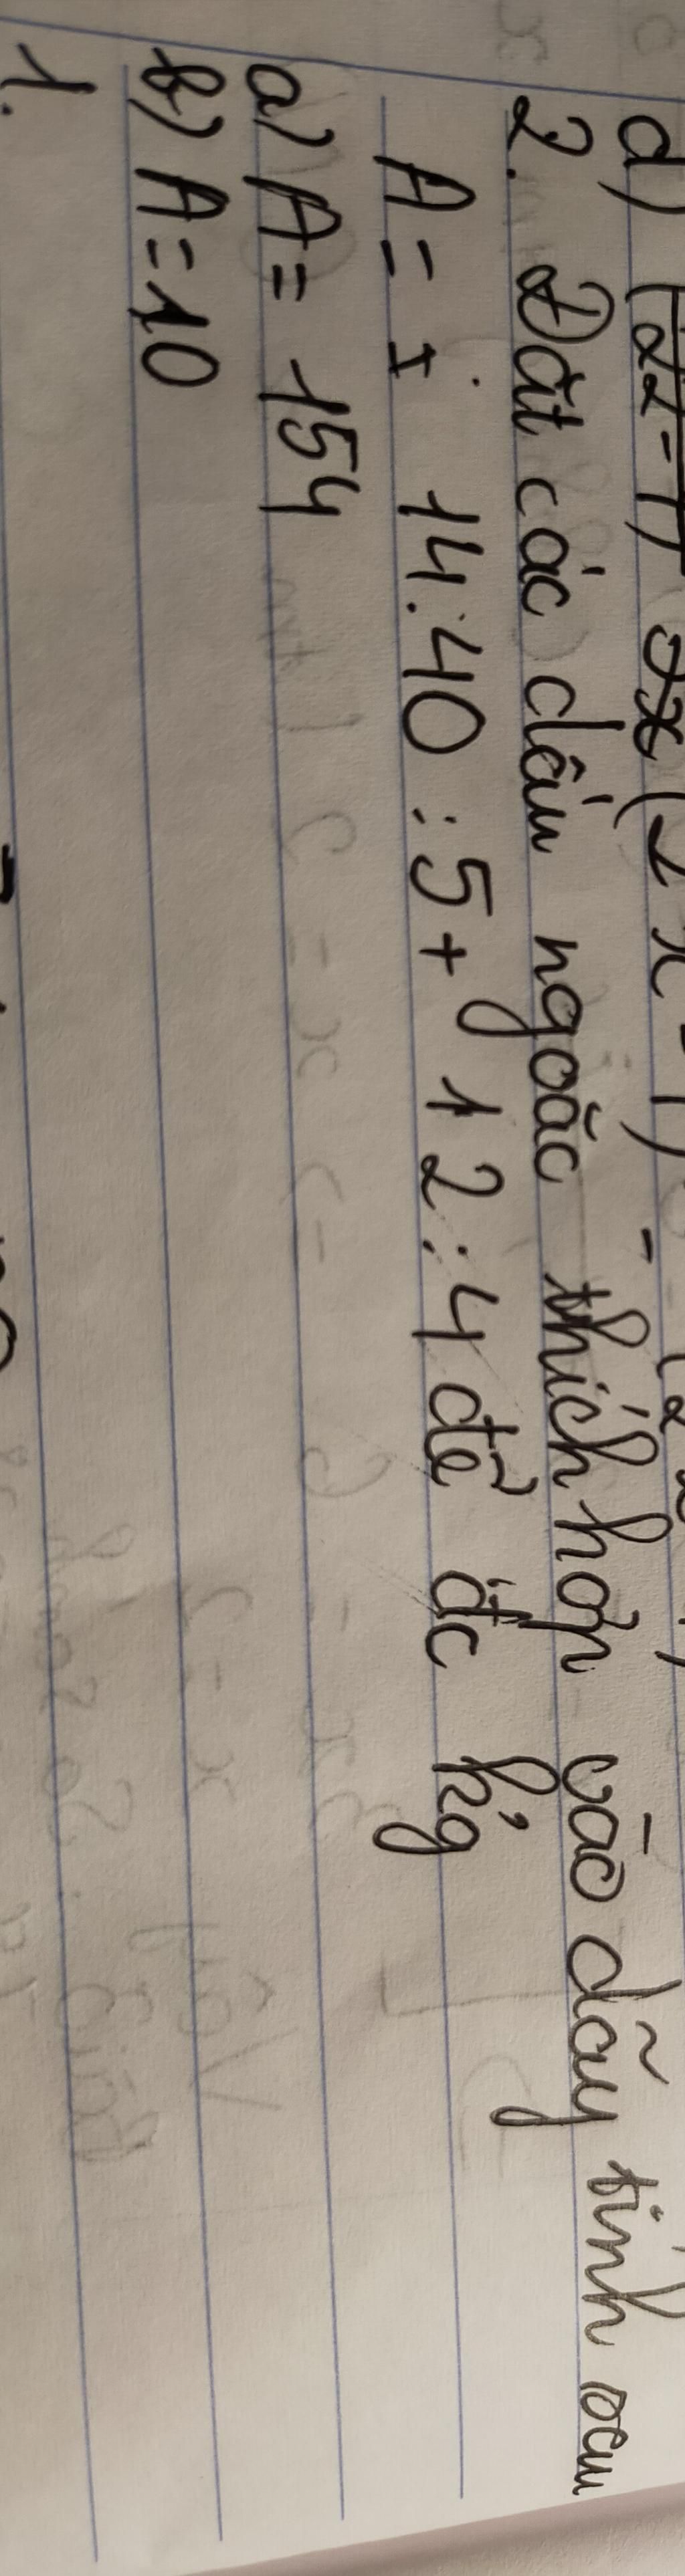 d) (2x-1) 3x (2x-1) -
2. Đăt các dấu ngoăc thích hợp vào dãy tính sau
A = 14.40 : 5 + 12 : 4 để đc kq
a) A = 154
b) A = 10
1.